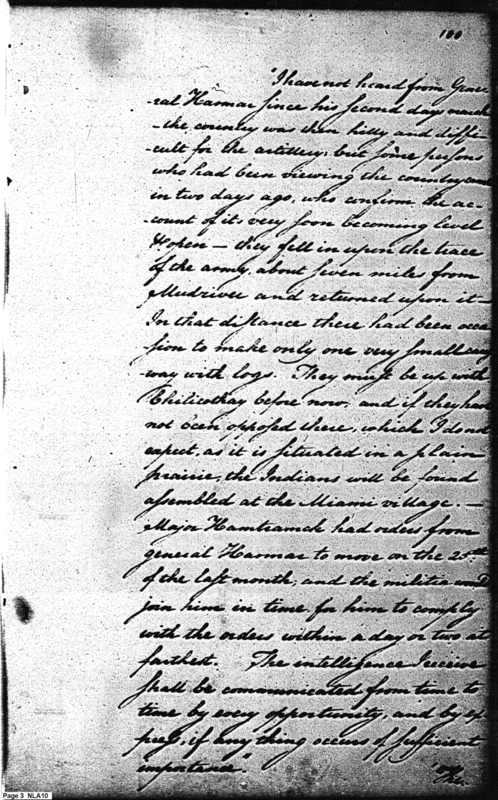 100
"I have not heard from Gene-
-ral Harmar since his second days march
- the country was then hilly and diffi-
-cult for the artillery, but some persons
who had been viewing the country came
in two days ago, who confirm the ac-
-count of it very soon becoming level
& open — they fell in upon the trace
of the army, about seven miles from
Mudriver and returned upon it —
In that distance there had been occa-
-sion to make only one very small
way with logs. They must be up with
Chilicothay before now, and if they have
not been opposed there, which I do not
expect, as it is situated in a plain
prairie, the Indians will be found
assembled at the Miami village. —
Major Hamtramck had orders from
general Harmar to move on the 25th
of the last month, and the militia would
join him in time for him to comply
with the orders within a day or two at
farthest. The intelligence I receive
shall be communicated from time to
time by every opportunity, and by ex-
press, if any thing occurs of sufficient
importance."
Page 3 NLA10